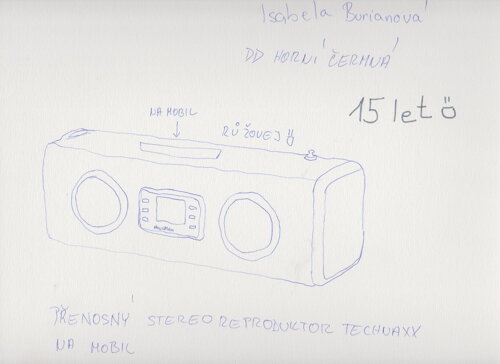 Isabela Burianová
DD HORNÍ ČERMNÁ
15 let
NA MOBIL
RŮŽOVEJ
PŘENOSNÝ STEREO REPRODUKTOR TECHNAXX
NA MOBIL